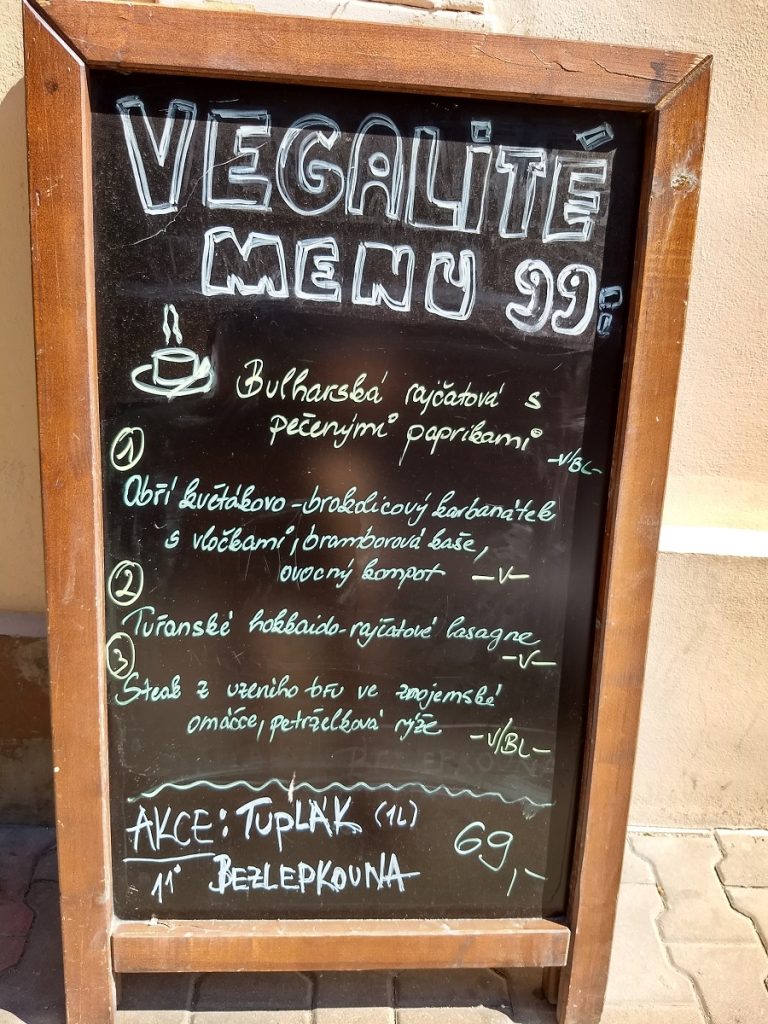 VEGALITÉ
MENU 99:
Bulharská rajčatová s
pečenými paprikami
-V/BL-
1
Obří květákovo-brokolicový karbanátek
s vločkami, bramborová kaše,
ovocný kompot -V-
2
Tuřanské hokkaido-rajčatové lasagne
-V-
3
Steak z uzeného tofu ve znojemské
omáčce, petrželková rýže -V/BL-
AKCE: TUPLÁK (1L) 69,-
11° BEZLEPKOVNA